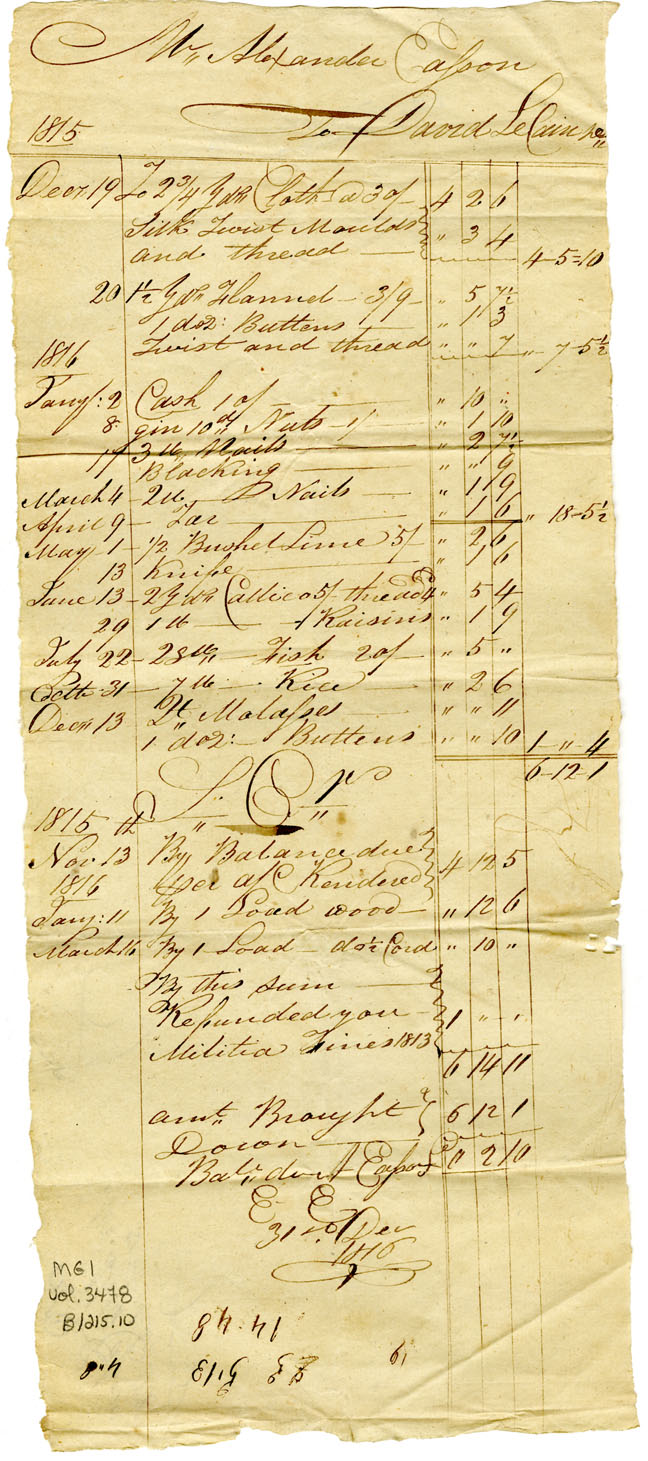 Mr,, Alexander Easson
1815 To David LeCain
Decr. 19 To 2 3/4 Yds Cloth @ 30/ 4 2 6
Silk Twist Moulds
and thread — " 3 4 4-5=10
20 1½ Yds Flannel - 3/9 - " 5 7½
1 doz: Buttens - " 1 3
1816 Twist and thread " " 7 " 7-5½
Jany: 2 Cash 10/ — " 10 "
8 gin 10d Nuts 1/ - " 1 10
17 3 lb Nails — " 2 7½
Blacking — " " 9
March 4 - 2 lb — D Nails — " 1 9
April 9 - Tar — " 1 6 " 18-5½
May 1 - 1/2 Bushel Lime 5/ " 2 6
13 Knife — " 1 6
June 13 - 2 Yds Callico 5/- thread 4 " 5 4
29 1 lb — Raisins " 1 9
July 22 - 28 lb,, - Fish 20/ - " 5 "
Octbr 31 - 7 lb - Rice " 2 6
Decr,, 13 Qt,, Molasses — " " 11
1 doz: - Buttens " " 10 1 " 4
6-12-1
1815 Cr
Nov. 13 By Balance due
1816 per a/c Rendered 4 12 5
Jany: 11 By 1 Load wood - " 12 6
March 16 By 1 - Load - do ½ Cord " 10 "
By this sum —
Refunded you - 1 " "
Militia Fines 1813
6 14 11
amt,, Brought 6 12 1
Down —
Bale,, due A Easson £ " 2 10
E- E-
31st Dec
1816
MG1
Vol. 3478
B/215.10